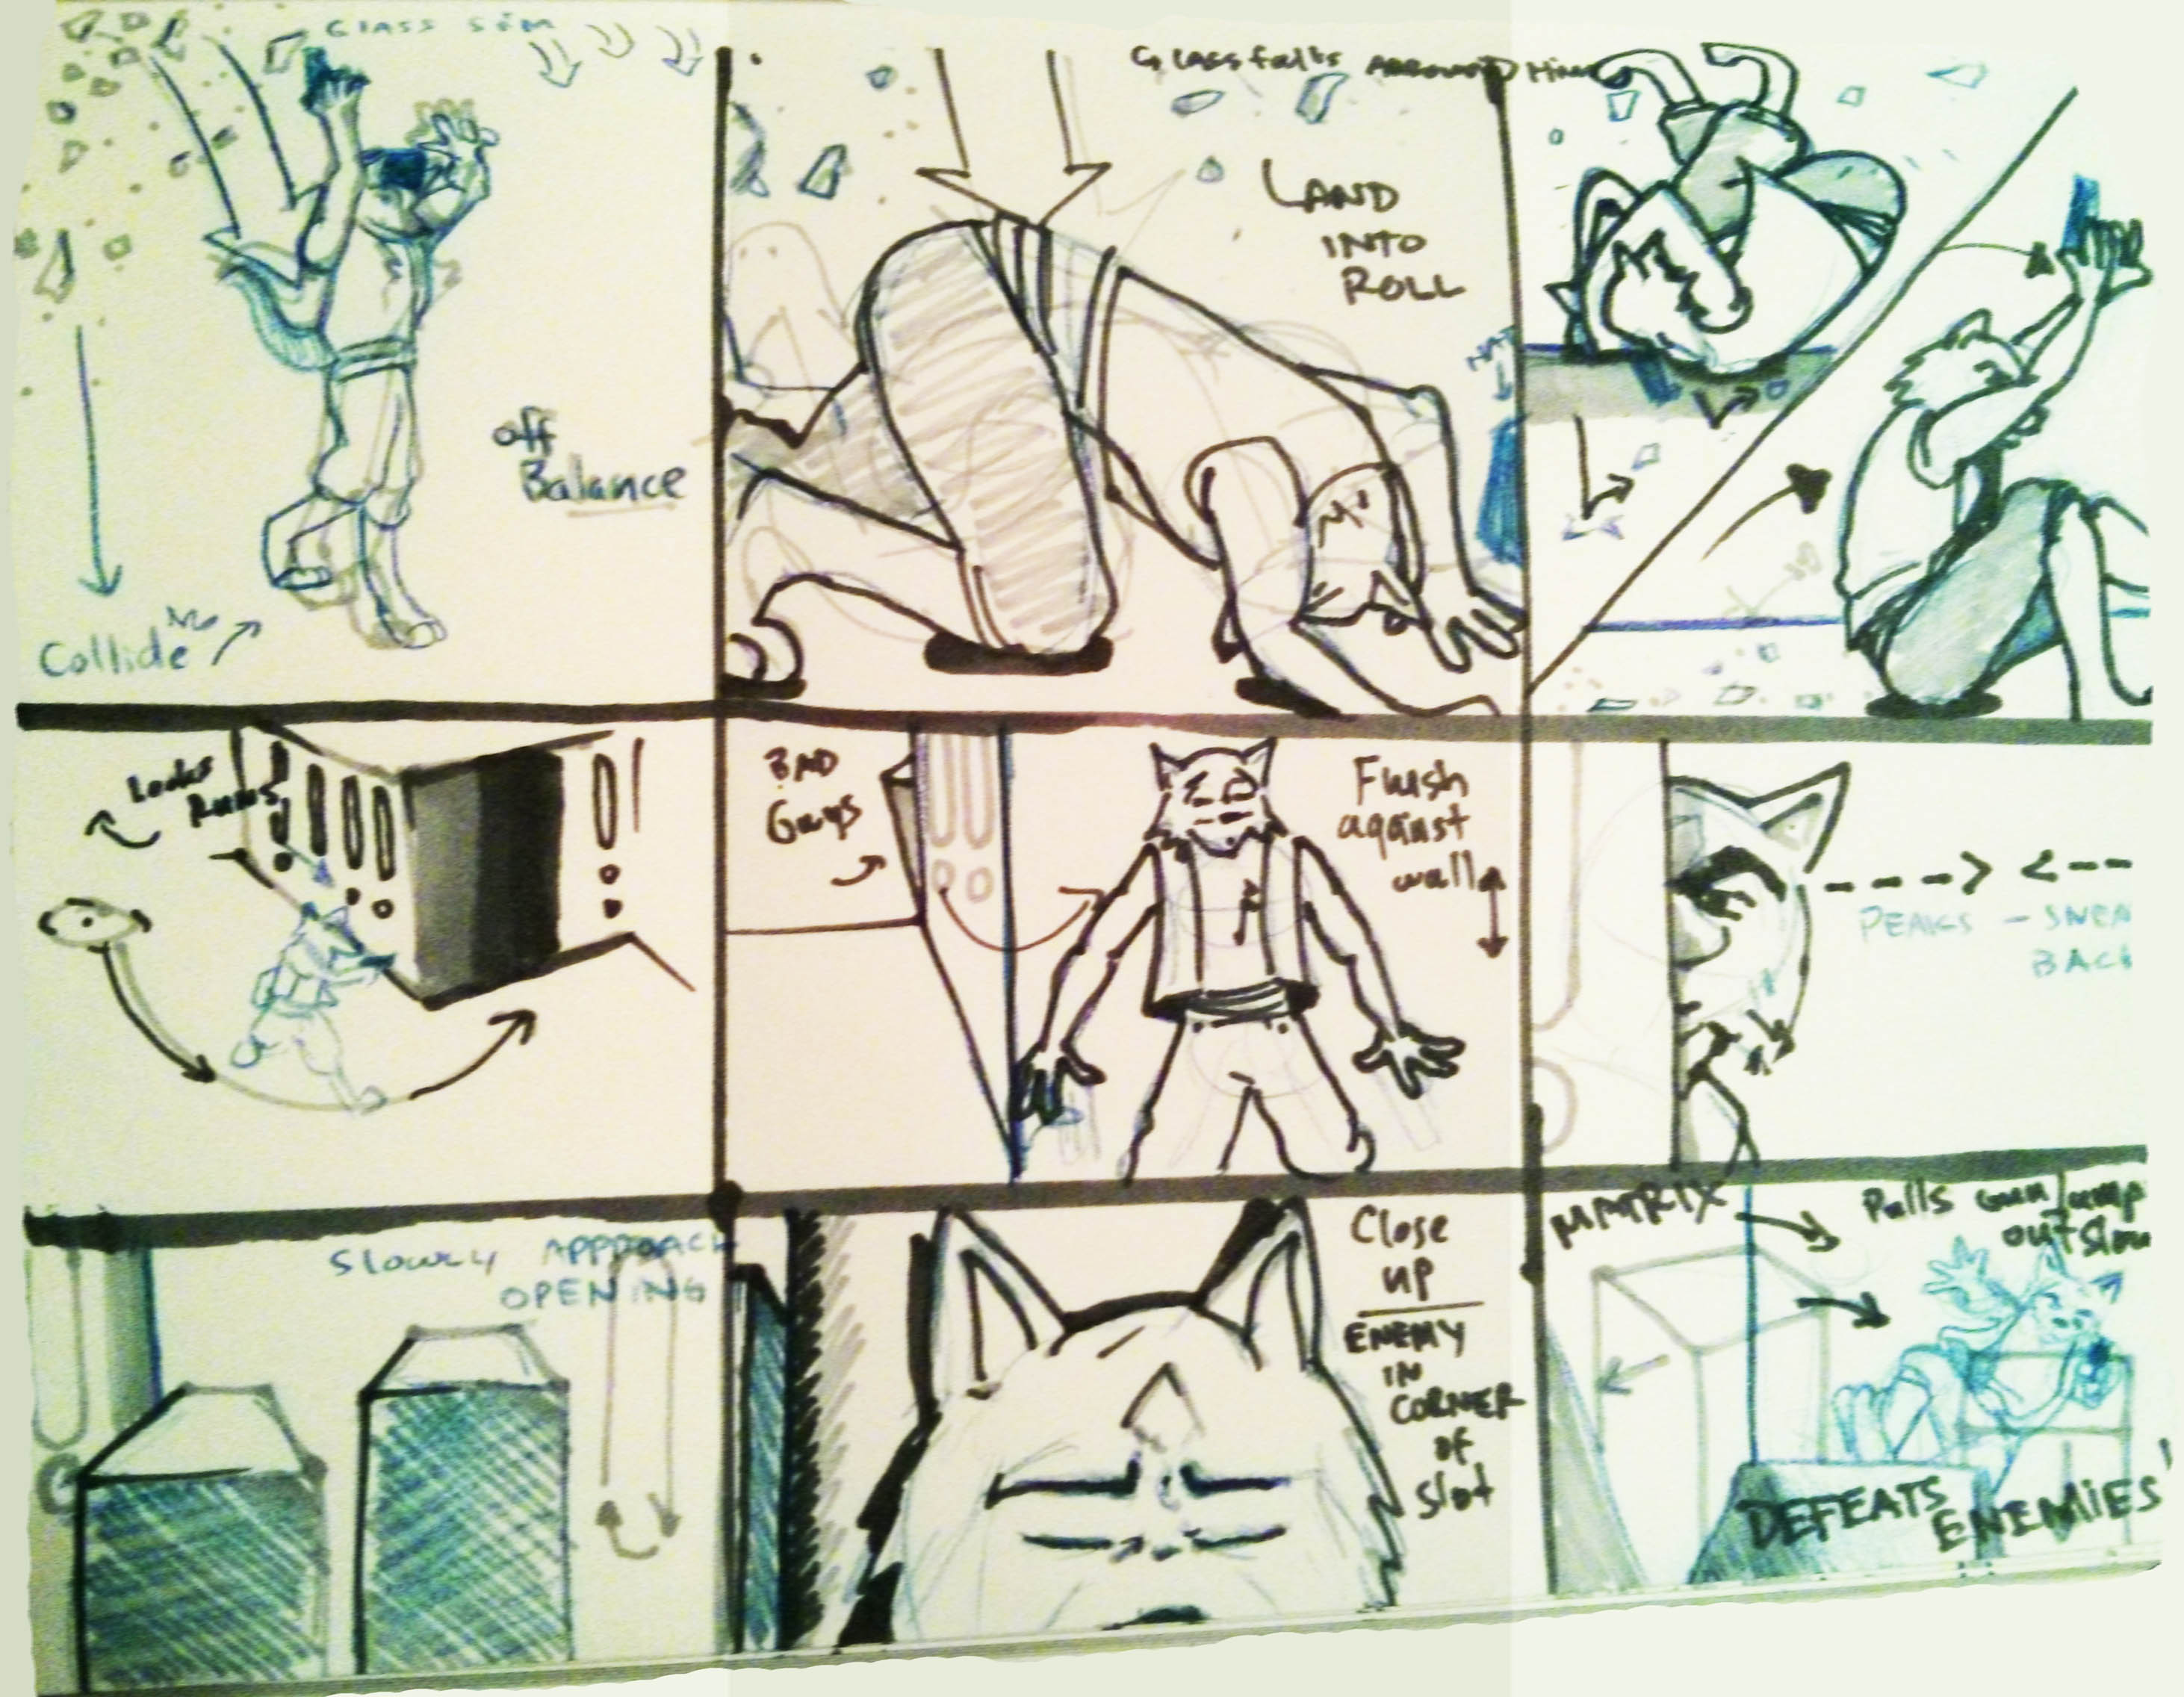 GLASS SIM
off
Balance
Collide
Glass falls AROUND Him
LAND
INTO
ROLL
Looks
Runs
BAD
Guys
Flush
against
wall
PEAKS -
BACK
Slowly APPROACH
OPENING
Close
up
ENEMY
IN
CORNER
of
slot
MATRIX
Pulls Gun Jump
out slow
DEFEATS
ENEMIES